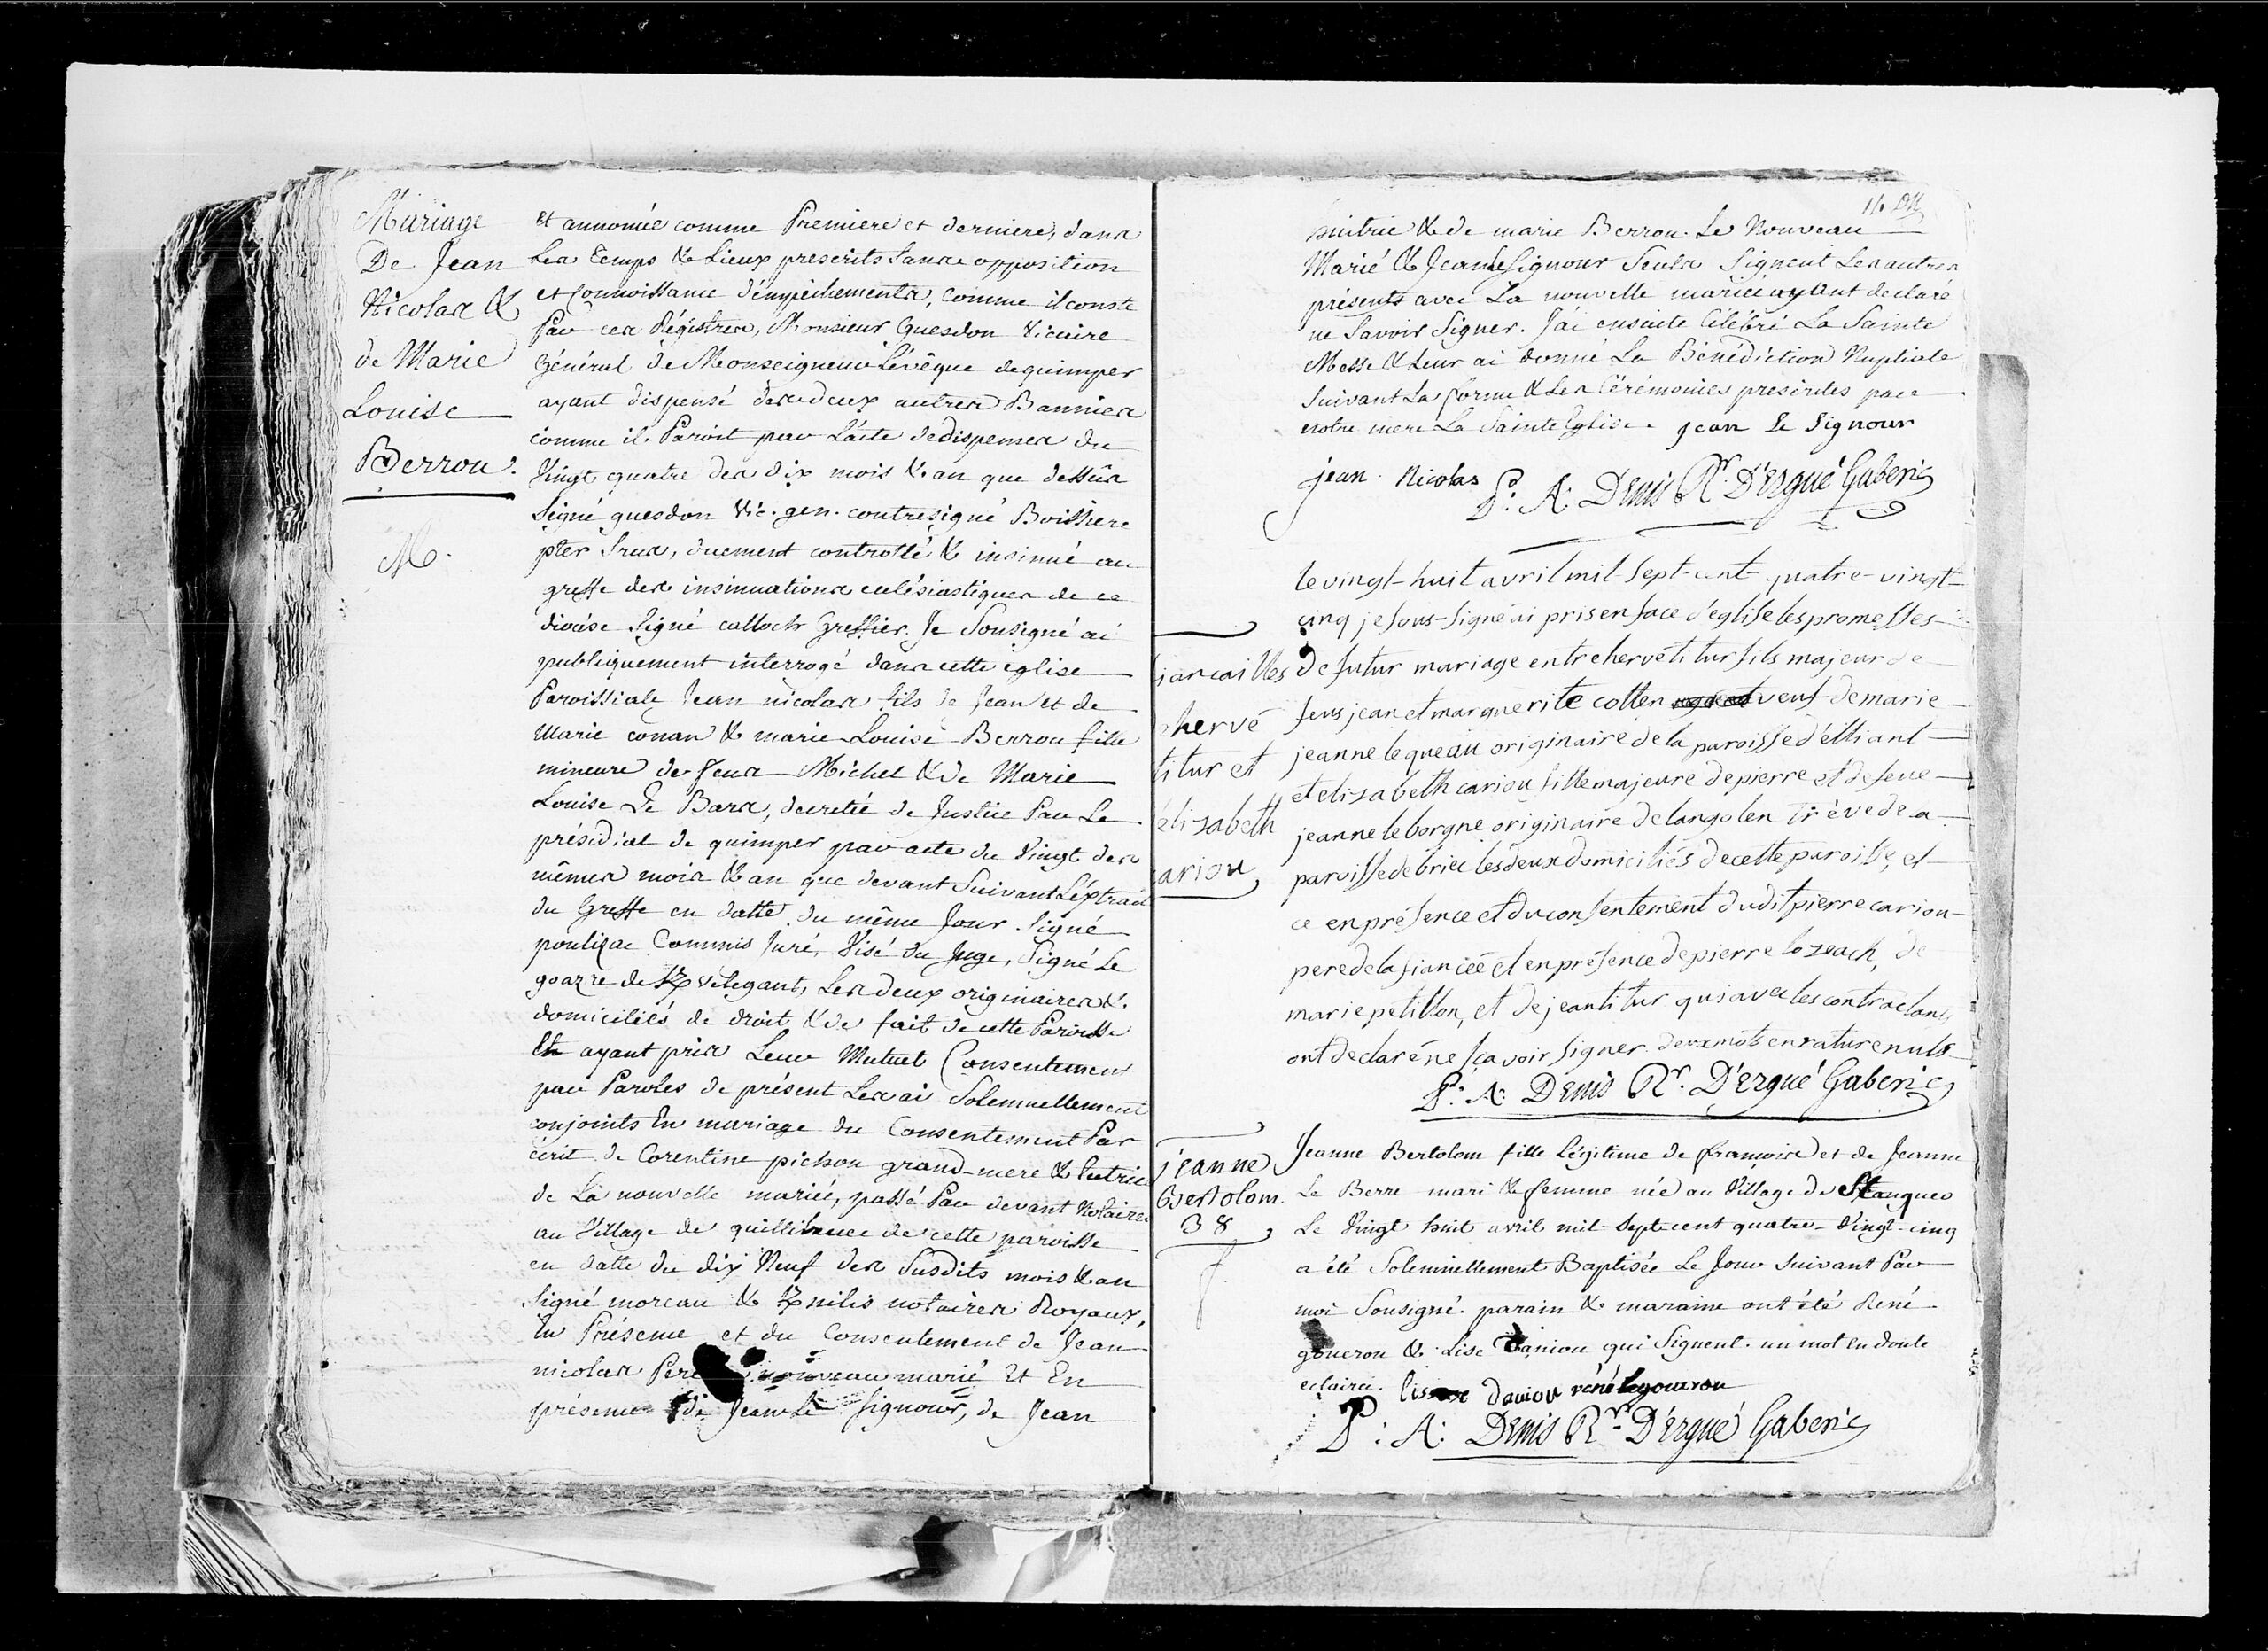 Mariage
De Jean
Nicolas &
de Marie
Louise
Berrou.
M.
et annoncée comme Premiere et derniere, dans
Les temps & Lieux prescrits sans opposition
et connoissance d'empêchements, comme il conste
Par ces Régistres, Monsieur Quesdon Vicaire
Général de Monseigneur L'évêque de quimper
ayant dispensé des deux autres Bannies
comme il Paroit par L'acte de dispenses du
Vingt quatre des dix mois & an que dessus
Signé quesdon Vic. gen. contresigné Boissiere
pter , duement controllé & insinué au
greffe des insinuations eclésiastiques de ce
diocése Signé calloch Greffier. Je Sousigné ai
publiquement interrogé dans cette église
Paroissiale Jean nicolas fils de Jean et de
Marie conan & marie Louise Berrou fille
mineure de feus Michel & de Marie
Louise Le Bars, decretée de Justice Par Le
présidial de quimper par acte du Vingt des
mêmes mois & an que devant Suivant L'éxtrait
du Greffe en datte du même Jour Signé
poulizac Commis Juré, Visé du Juge, Signé Le
goazre de Kvelegant, Les deux originaires &
domiciliés de droit & de fait de cette Paroisse
Et ayant pris Leur Mutuel Consentement
par Paroles de présent Les ai Solemnellement
conjoints En mariage du Consentement Par
écrit de Corentine pichon grand-mere & tutrice
de La nouvelle mariée, passé Par devant Notaires
au Village de quillihuec de cette paroisse
en datte du dix Neuf des Susdits mois & an
Signé moreau & Knilis notaires Royaux,
En Présence et du Consentement de Jean
nicolas Pere nouveau marié Et En
présence de Jean Le Signour, de Jean
& de marie Berrou. Le Nouveau
Marié & Jean Le Signour Seuls Signent Les autres
présents avec La nouvelle mariée ayant declaré
ne Savoir Signer. J'ai ensuite Célébré La Sainte
Messe & Leur ai donné La Bénédiction Nuptiale
Suivant La forme & Les Cérémonies prescrites par
notre mere La Sainte Eglise. jean Le Signour
jean Nicolas P. A. Denis Rr. D'Ergué Gaberic
fiancailles
hervé
titur et
élizabeth
cariou
le vingt-huit avril mil-sept-cent-quatre-vingt-
cinq je sous-signé ai pris en face d'eglise les promesses
de futur mariage entre hervé titur fils majeur de
feus jean et marguerite cotten veuf de marie-
jeanne lequeau originaire de la paroisse d'elliant
et elizabeth cariou fille majeure de pierre et de feue
jeanne leborgne originaire de langolen trève de a
paroisse de briec les deux domiciliés de cette paroisse, et
ce en présence et du consentement dudit pierre cariou
pere de la fiancée et en présence de pierre lozeach, de
marie petillon, et de jean titur qui avec les contractants
ont declaré ne sçavoir signer. deux mots en rature nuls
P. A. Denis Rr. D'Ergué Gaberic
jeanne
Bertolom.
38
f.
Jeanne Bertolom fille Légitime de françois et de Jeanne
Le Berre mari & femme née au Village de Stanquer
Le Vingt huit avril mil-Sept cent quatre-Vingt-cinq
a été Solemnellement Baptisée Le Jour suivant Par
moi Sousigné. parain & maraine ont été René
goueron & Lise Daniou qui Signent. un mot en doute
eclairci. lise Daniou réné legoueron
P. A. Denis Rr. D'Ergué Gaberic